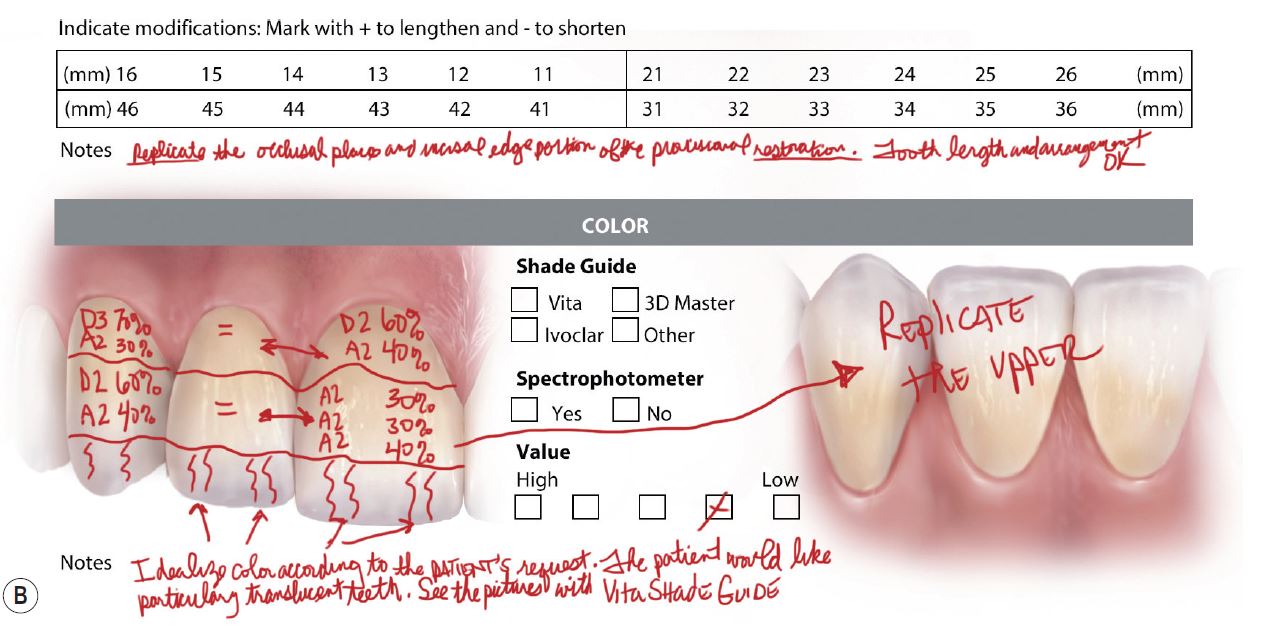 Indicate modifications: Mark with + to lengthen and - to shorten
(mm) 16 15 14 13 12 11 21 22 23 24 25 26 (mm)
(mm) 46 45 44 43 42 41 31 32 33 34 35 36 (mm)
Notes Replicate the occlusal plane and incisal edge portion of the provisional restoration. Tooth length and arrangement
OK
COLOR
D3 70%
A2 30%
D2 60%
A2 40%
=
=
D2 60%
A2 40%
A2 30%
A2 30%
A2 40%
Shade Guide
Vita 3D Master
Ivoclar Other
Spectrophotometer
Yes No
Value
High Low
REPLICATE
THE UPPER
Notes Idealize color according to the PATIENT'S request. The patient would like
particulary translucent teeth. See the pictures with VITA SHADE GUIDE
B